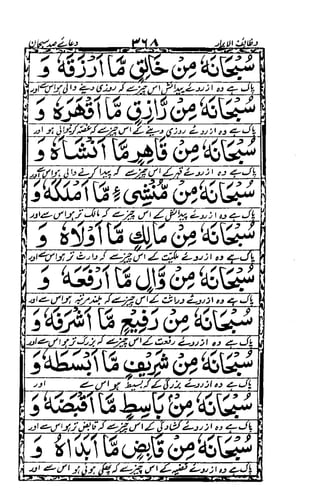 وظائف الابرار ۳۶۸ دعائے صد سبحان
سُبْحَانَهٗ مِنْ خَالِقٍ مَّا اَرْزَقَهٗ وَ
پاک ہے وہ ازروئے پیدائش اس چیز سے کہ روزی دینے والی ہو اس سے اور
سُبْحَانَهٗ مِنْ رَازِقٍ مَّا اَقْهَرَهٗ وَ
پاک ہے وہ ازروئے روزی دینے کے اس چیز سے کہ غصہ کرنوالی ہو اور
سُبْحَانَهٗ مِنْ قَاهِرٍ مَّا اَنْشَاهُ وَ
پاک ہے وہ ازروئے قہر کے اس چیز سے کہ پیدا کرنے والی ہو اس سے اور
سُبْحَانَهٗ مِنْ مُّنْشِیءٍ مَّا اَمْلَكَهٗ وَ
پاک ہے وہ ازروئے پیدائش کے اس چیز سے کہ مالک تر ہو اس سے اور
سُبْحَانَهٗ مِنْ مَالِكٍ مَّا اَوْلَاهُ وَ
پاک ہے وہ ازروئے ملکیت کے اس چیز سے کہ وارث تر ہو اس سے اور
سُبْحَانَهٗ مِنْ وَّالٍ مَّا اَرْفَعَهٗ وَ
پاک ہے وہ ازروئے وراثت کے اس چیز سے کہ بلند مرتبہ ہو اس سے اور
سُبْحَانَهٗ مِنْ رَفِيْعٍ مَّا اَشْرَفَهٗ وَ
پاک ہے وہ ازروئے رفعت کے اس چیز سے کہ بزرگ تر ہو اس سے اور
سُبْحَانَهٗ مِنْ شَرِيْفٍ مَّا اَبْسَطَهٗ وَ
پاک ہے وہ ازروئے بزرگی کے کہ بسیط ہو اس سے اور
سُبْحَانَهٗ مِنْ بَاسِطٍ مَّا اَقْبَضَهٗ وَ
پاک ہے وہ ازروئے کشادگی کے اس چیز سے کہ قابض تر ہو اس سے اور
سُبْحَانَهٗ مِنْ قَابِضٍ مَّا اَبْدَاهُ وَ
پاک ہے وہ ازروئے قبضہ کے اس چیز سے کہ ہوئی ہو اس سے اور